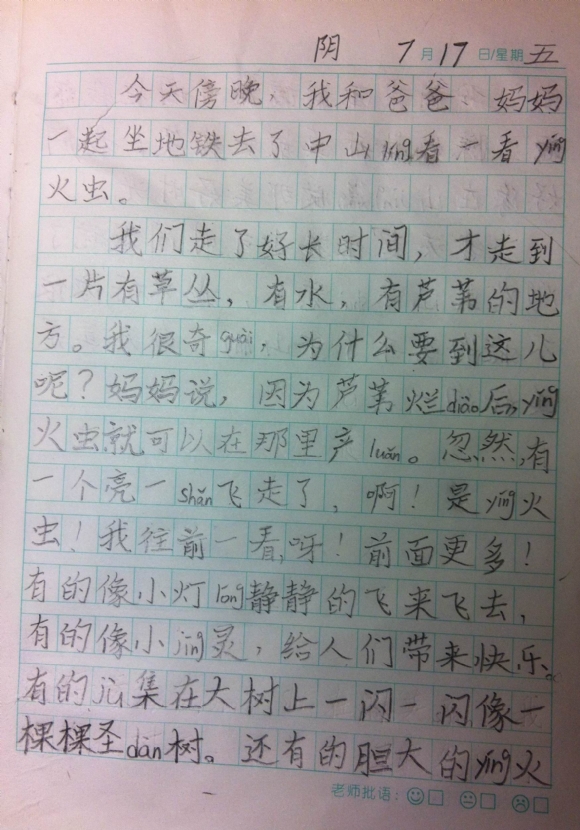 阴 7月17日/星期五
今天傍晚，我和爸爸 妈妈
一起坐地铁去了中山líng看一看yíng
火虫。
我们走了好长时间，才走到
一片有草丛，有水，有芦苇的地
方。我很奇guài，为什么要到这儿
呢？妈妈说，因为芦苇烂diào后，yíng
火虫就可以在那里产luǎn。忽然，有
一个亮一shǎn飞走了，啊！是yíng火
虫！我往前一看，呀！前面更多！
有的像小灯lóng静静的飞来飞去，
有的像小jīng灵，给人们带来快乐。
有的 集在大树上一闪一闪像一
棵棵圣dàn树。还有的胆大的yíng火
老师批语：